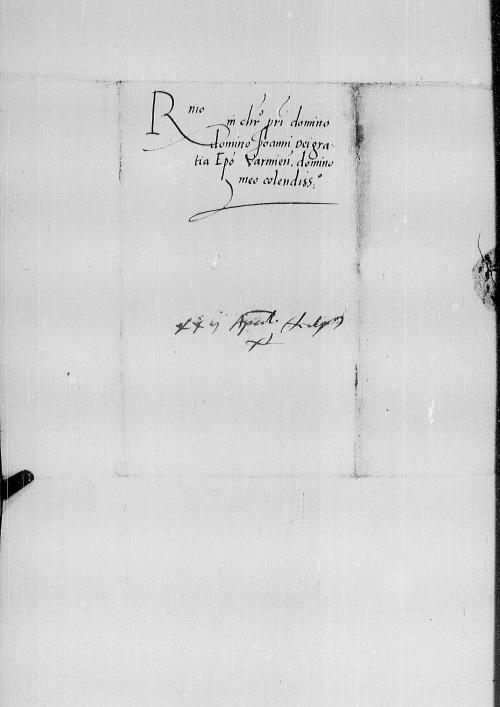 Rmo
in chro pri domino
domino Joanni Dei gra-
tia Epo Varmien. domino
meo colendiss.o
xxij April.
xl